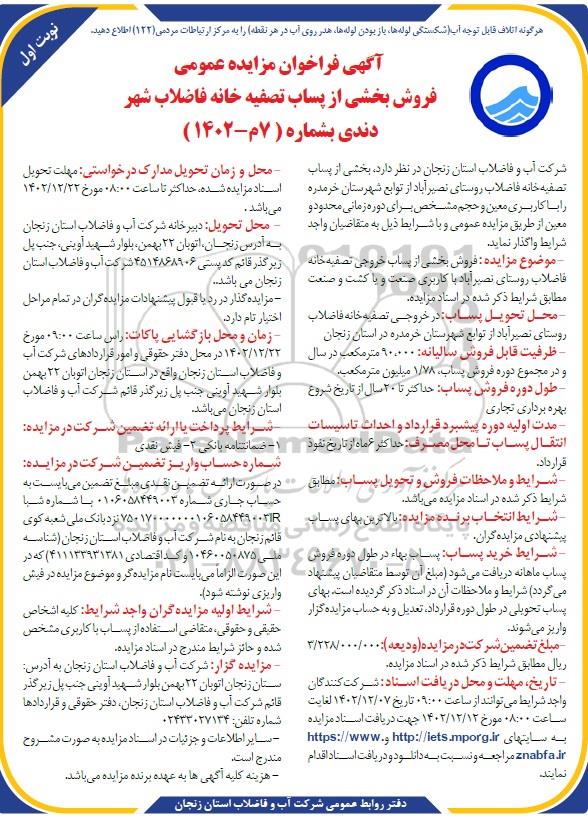 هرگونه اتلاف قابل توجه آب(شکستگی لوله‌ها، باز بودن لوله‌ها، هدر روی آب در هر نقطه) را به مرکز ارتباطات مردمی(۱۲۲) اطلاع دهید.
نوبت اول
آگهی فراخوان مزایده عمومی
فروش بخشی از پساب تصفیه خانه فاضلاب شهر
دندی بشماره ( ۷م-۱۴۰۲ )
شرکت آب و فاضلاب استان زنجان در نظر دارد، بخشی از پساب
تصفیه‌خانه فاضلاب روستای نصیرآباد از توابع شهرستان خرمدره
را با کاربری معین و حجم مشخص برای دوره زمانی محدود و
معین از طریق مزایده عمومی و با شرایط ذیل به متقاضیان واجد
شرایط واگذار نماید.
-موضوع مزایده: فروش بخشی از پساب خروجی تصفیه‌خانه
فاضلاب روستای نصیرآباد با کاربری صنعت و یا کشت و صنعت
مطابق شرایط ذکر شده در اسناد مزایده.
- محل تحویل پساب: در خروجی تصفیه‌خانه فاضلاب
روستای نصیرآباد از توابع شهرستان خرمدره در استان زنجان
- ظرفیت قابل فروش سالیانه: ۹۰،۰۰۰ مترمکعب در سال
و در مجموع دوره فروش پساب، ۱/۷۸ میلیون مترمکعب.
-طول دوره فروش پساب: حداکثر تا ۲۰سال از تاریخ شروع
بهره برداری تجاری
- مدت اولیه دوره پیشبرد قرارداد و احداث تاسیسات
انتقال پساب تا محل مصرف: حداکثر ۶ماه از تاریخ نفوذ
قرارداد.
- شرایط و ملاحظات فروش و تحویل پساب: مطابق
شرایط ذکر شده در اسناد مزایده می‌باشد.
- شرایط انتخاب برنده مزایده: بالاترین بهای پساب
پیشنهادی مزایده‌گران.
- شرایط خرید پساب: پساب بهاء در طول دوره فروش
پساب ماهانه دریافت می‌شود (مبلغ آن توسط متقاضیان پیشنهاد
می‌گردد) شرایط و ملاحظات آن در اسناد ذکر گردیده است، بهای
پساب تحویلی در طول دوره قرارداد، تعدیل و به حساب مزایده‌گزار
واریز می‌شوند.
-مبلغ تضمین شرکت در مزایده(ودیعه): ۳/۲۲۸/۰۰۰/۰۰۰
ریال مطابق شرایط ذکر شده در اسناد مزایده.
- تاریخ، مهلت و محل دریافت اسناد: شرکت کنندگان
واجد شرایط می‌توانند از ساعت ۰۹:۰۰ تاریخ ۱۴۰۲/۱۲/۰۷ لغایت
ساعت ۰۸:۰۰ مورخ ۱۴۰۲/۱۲/۱۲ جهت دریافت اسناد مزایده
به سایتهای http://iets.mporg.ir و https://www.
znabfa.ir مراجعه و نسبت به دانلود و دریافت اسناد اقدام
نمایند.
- محل و زمان تحویل مدارک درخواستی: مهلت تحویل
اسناد مزایده شده، حداکثر تا ساعت ۰۸:۰۰ مورخ ۱۴۰۲/۱۲/۲۲
می‌باشد .
- محل تحویل: دبیرخانه شرکت آب و فاضلاب استان زنجان
به آدرس زنجان، اتوبان ۲۲ بهمن، بلوار شهید آوینی، جنب پل
زیر گذر قائم کد پستی ۴۵۱۴۸۶۸۹۰۶ شرکت آب و فاضلاب استان
زنجان می باشد.
- مزایده‌گذار در رد یا قبول پیشنهادات مزایده‌گران در تمام مراحل
اختیار تام دارد.
- زمان و محل بازگشایی پاکات: راس ساعت ۰۹:۰۰ مورخ
۱۴۰۲/۱۲/۲۲ در محل دفتر حقوقی و امور قراردادهای شرکت آب
و فاضلاب استان زنجان واقع در استان زنجان اتوبان ۲۲ بهمن
بلوار شهید آوینی جنب پل زیر گذر قائم شرکت آب و فاضلاب
استان زنجان می‌باشد.
- شرایط پرداخت یا ارائه تضمین شرکت در مزایده:
۱- ضمانتنامه بانکی ۲- فیش نقدی
شماره حساب واریز تضمین شرکت در مزایده:
در صورت ارائه تضمین نقدی مبلغ تضمین می‌بایست به
حساب جاری شماره ۰۱۰۶۰۵۸۴۴۹۰۰۳ با شماره شبا
نزد بانک ملی شعبه کوی
قائم زنجان به نام شرکت آب و فاضلاب استان زنجان (شناسه
ملی ۱۰۴۶۰۰۵۰۸۷۵ و کد اقتصادی ۴۱۱۱۳۳۹۳۱۳۸۱) که در
این صورت الزاما می‌بایست نام مزایده‌گر و موضوع مزایده در فیش
واریزی نوشته شود).
- شرایط اولیه مزایده گران واجد شرایط: کلیه اشخاص
حقیقی و حقوقی، متقاضی استفاده از پساب با کاربری مشخص
شده و حائز شرایط مندرج در اسناد مزایده.
- مزایده گزار: شرکت آب و فاضلاب استان زنجان به آدرس:
ستان زنجان اتوبان ۲۲ بهمن بلوار شهید آوینی جنب پل زیر گذر
قائم شرکت آب و فاضلاب استان زنجان، دفتر حقوقی و قراردادها
شماره تلفن: ۰۲۴۳۳۰۲۷۱۳۴
- سایر اطلاعات و جزئیات در اسناد مزایده به صورت مشروح
مندرج است.
- هزینه کلیه آگهی ها به عهده برنده مزایده می‌باشد.
دفتر روابط عمومی شرکت آب و فاضلاب استان زنجان